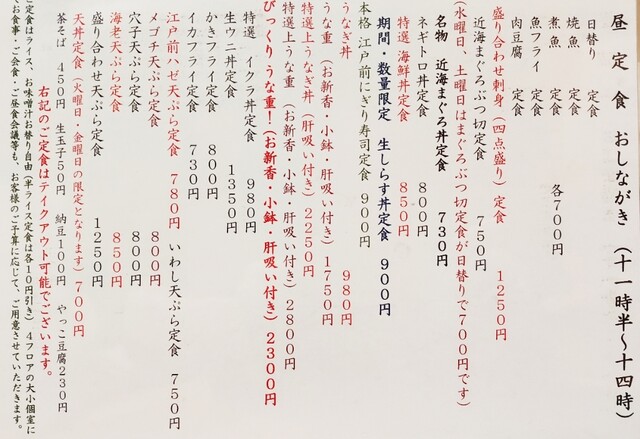 昼定食 おしながき (十一時半～十四時)
日替り 定食
焼魚 定食
煮魚 定食
魚フライ 定食
肉豆腐 定食
各700円
盛り合わせ刺身(四点盛り)定食 1250円
近海まぐろぶつ切定食 750円
(水曜日、土曜日はまぐろぶつ切定食が日替りで700円です)
名物 近海まぐろ丼定食 730円
ネギトロ丼定食 800円
特選 海鮮丼定食 850円
期間・数量限定 生しらす丼定食 900円
本格 江戸前にぎり寿司定食 900円
うなぎ丼 980円
うな重 (お新香・小鉢・肝吸い付き) 1750円
特選上うなぎ丼(肝吸い付き) 2250円
特選上うな重 (お新香・小鉢・肝吸い付き) 2800円
びっくりうな重!(お新香・小鉢・肝吸い付き) 2300円
特選 イクラ丼定食 980円
生ウニ丼定食 1350円
かきフライ定食 800円
イカフライ定食 730円
江戸前ハゼ天ぷら定食 780円 いわし天ぷら定食 750円
メゴチ天ぷら定食 800円
穴子天ぷら定食 800円
海老天ぷら定食 850円
盛り合わせ天ぷら定食 1250円
天丼定食(火曜日・金曜日の限定となります)700円
茶そば 450円 生玉子50円 納豆100円 やっこ豆腐230円
右記のご定食はテイクアウト可能でございます。
定食はライス、お味噌汁お替り自由(半ライス定食は各10円引き)4フロアの大小個室に
お食事・ご会食・ご昼食会議等も、お客様のご予算に応じて、ご用意させていただきます。